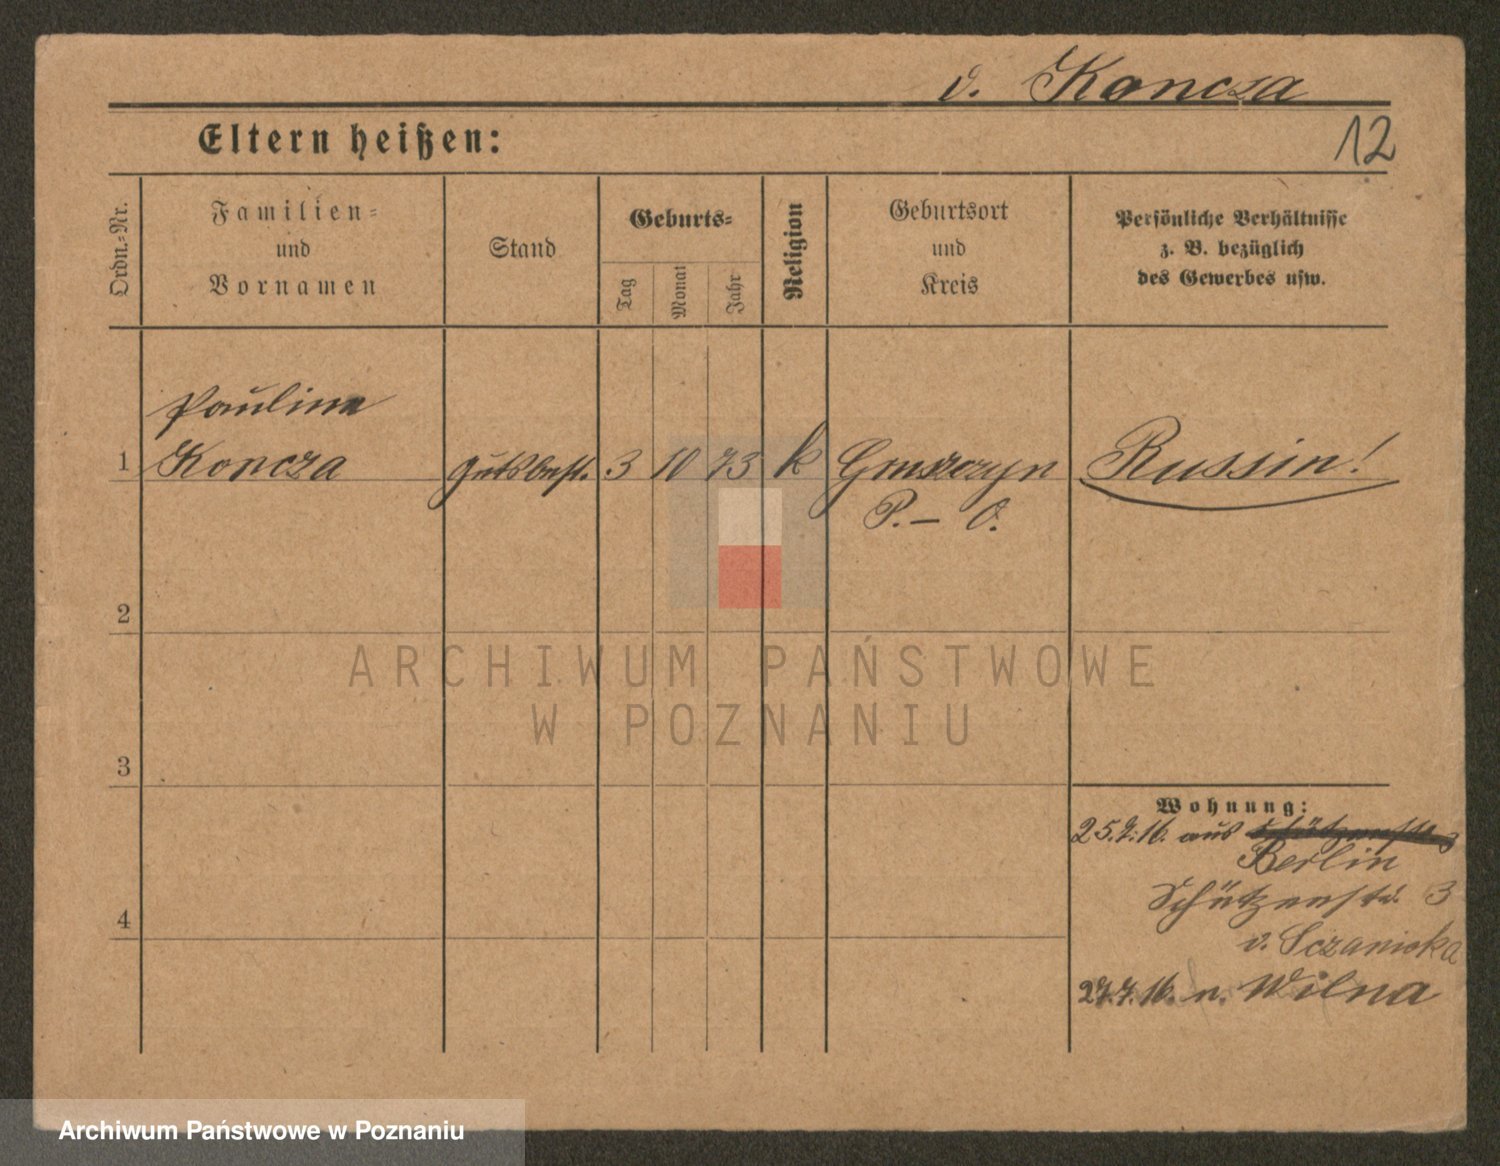 v. Koncza
12
Eltern heißen:
Ordn.-Nr.
Familien-
und
Vornamen
Stand
Geburts-
Tag
Monat
Jahr
Religion
Geburtsort
und
Kreis
Persönliche Verhältnisse
z. B. bezüglich
des Gewerbes usw.
Pauline
1 Koncza Gutsbes. 3 10 73 k Gruszczyn Russin!
P. – O.
2
3
4
Wohnung:
25.7.16. aus
Berlin
Schützenstr. 3
v. Sczaniecka
27.7.16. n. Wilna
ARCHIWUM PAŃSTWOWE
W POZNANIU
Archiwum Państwowe w Poznaniu